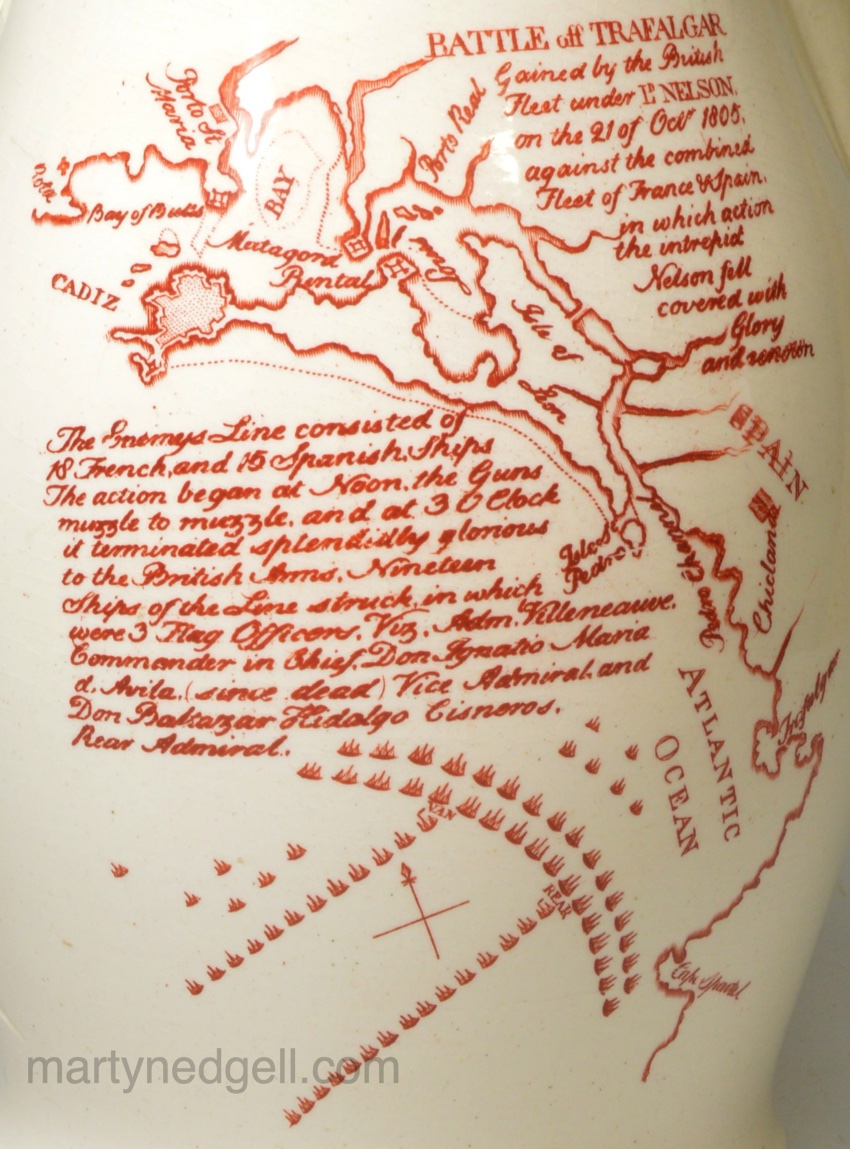 BATTLE off TRAFALGAR
Gained by the British
Fleet under Ld NELSON,
on the 21 of Octr 1805,
against the combined
Fleet of France & Spain,
in which action
the intrepid
Nelson fell
covered with
Glory
and renown
Porto St
Maria
Rota
Bay of Bulls
BAY
Porto Real
Matagord
Puntal
CADIZ
Isle of
Leon
The Enemys Line consisted of
18 French, and 15 Spanish, Ships
The action began at Noon, the Guns
muzzle to muzzle, and at 3 O Clock
it terminated splendidly glorious
to the British Arms. Nineteen
Ships of the Line struck, in which
were 3 Flag Officers, Viz. Adm. Villeneauve,
Commander in Chief, Don Ignatio Maria
d. Avila, (since dead) Vice Admiral, and
Don Baltazar Hidalgo Cisneros,
Rear Admiral.
SPAIN
Chiclana
Isle St
Pedro
Trafalgar
ATLANTIC
OCEAN
VAN
REAR
Cape Spartel
martynedgell.com